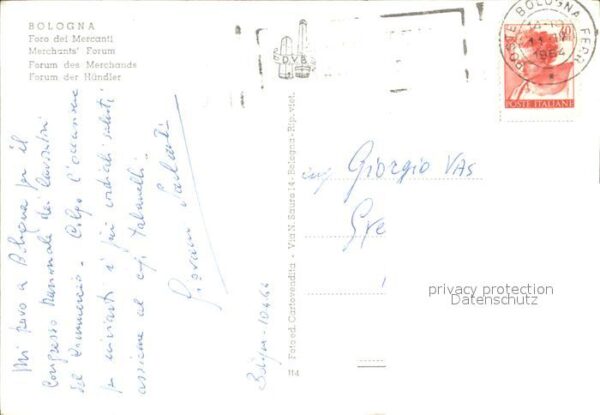 BOLOGNA
Foro dei Mercanti
Merchants' Forum
Forum des Merchands
Forum der Händler
Mi trovo a Bologna per il
Congresso Nazionale dei lavoratori
del Commercio. Colgo l'occasione
per inviarti i più cordiali saluti
assieme al
Giovanni
Bologna - 10.4.64
114 Fotoed. Cartovendita - Via N. Sauro 14 - Bologna - Rip. viet.
D.V.B.
POSTE BOLOGNA FERR
1964
POSTE ITALIANE
Giorgio Vas
privacy protection
Datenschutz